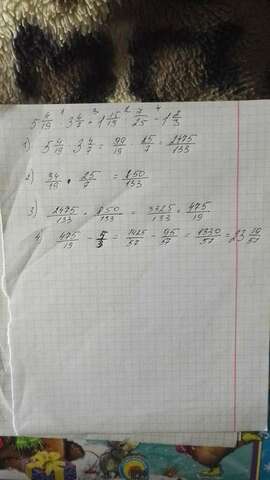 1 3 2 4
5 4/19 · 3 4/7 + 1 15/19 : 7/25 - 1 2/3
1) 5 4/19 · 3 4/7 = 99/19 · 25/7 = 2475/133
2) 34/19 · 25/7 = 850/133
3) 2475/133 + 850/133 = 3325/133 = 475/19
4) 475/19 - 5/3 = 1425/57 - 95/57 = 1330/57 = 23 19/57